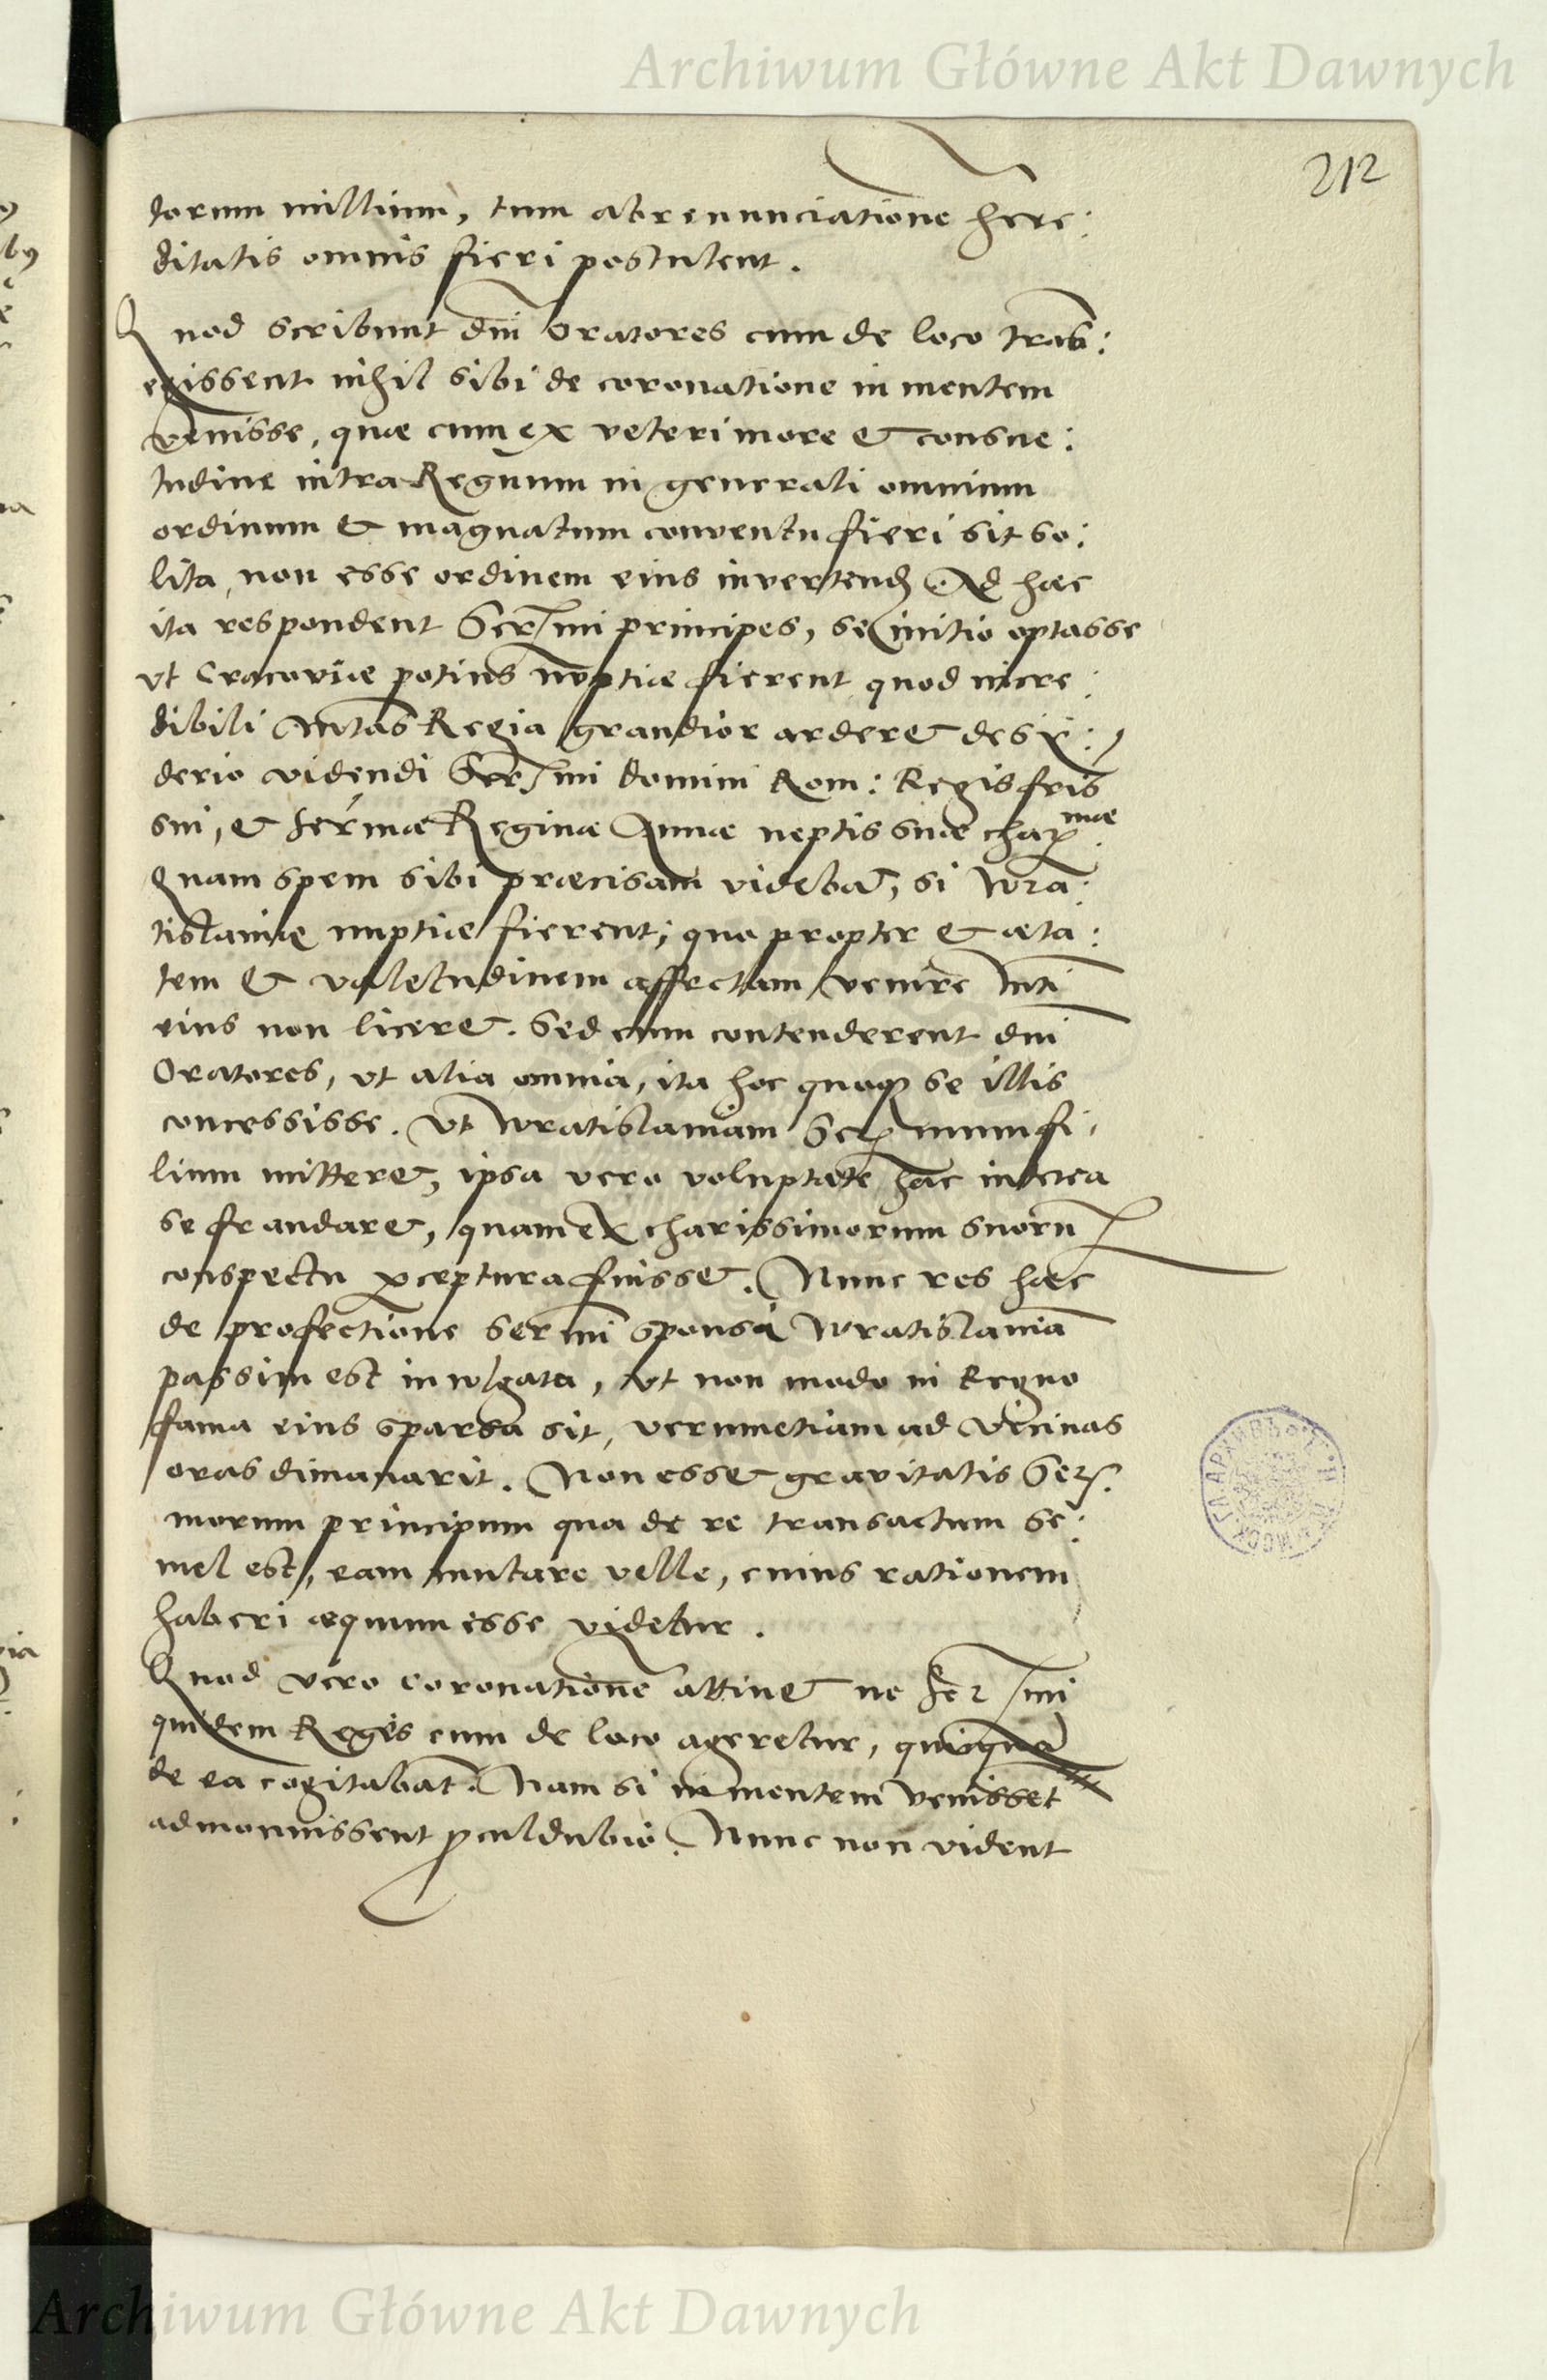 Archiwum Główne Akt Dawnych
212
torum millium, tum abrenunciatione here:
ditatis omnis fieri postulent.
Quod scribunt dni Oratores cum de loco trans:
egissent nihil sibi de coronatione in mentem
venisse, quæ cum ex veteri more & consue:
tudine intra Regnum in generali omnium
ordinum & magnatum conventu fieri sit so:
lita, non esse ordinem eius invertend. Ad hæc
ita respondent Ser mi principes, se initio optasse
vt Cracoviæ potius nuptiæ fierent quod incre:
dibili Mtas Regia grandior arderet desy:
derio videndi Ser mi domini Rom: Regis fris
sui, & Ser mæ Reginæ Annæ neptis suæ char mæ.
Quam spem sibi præcisam videbat, si Wra:
tislaviæ nuptiæ fierent; quo propter & æta:
tem & valetudinem affectam venire Mti
eius non liceret. Sed cum contenderent dni
Oratores, vt alia omnia, ita hoc quoq se illis
concessisse. Vt Wratislaviam Ser mum fi,
lium mitteret, ipsa vero voluptate hac interea
se fraudaret, quam ex charissimorum suoru
conspectu perceptura fuisset. Nunc res hæc
de profectione Ser mi sponsi Wratislaviā
passim est invulgata, vt non modo in Regno
fama eius sparsa sit, verumetiam ad vicinas
oras dimanarit. Non esset gravitatis Ser.
morum principum qua de re transactum se:
mel est, eam mutare velle, cuius rationem
haberi æquum esse videtur.
Quod vero coronationē attinet ne Ser mi
quidem Reges cum de loco ageretur, quicquā
de ea cogitabāt. Nam si in mentem venisset
admonuissent proculdubio. Nunc non vident
Archiwum Główne Akt Dawnych